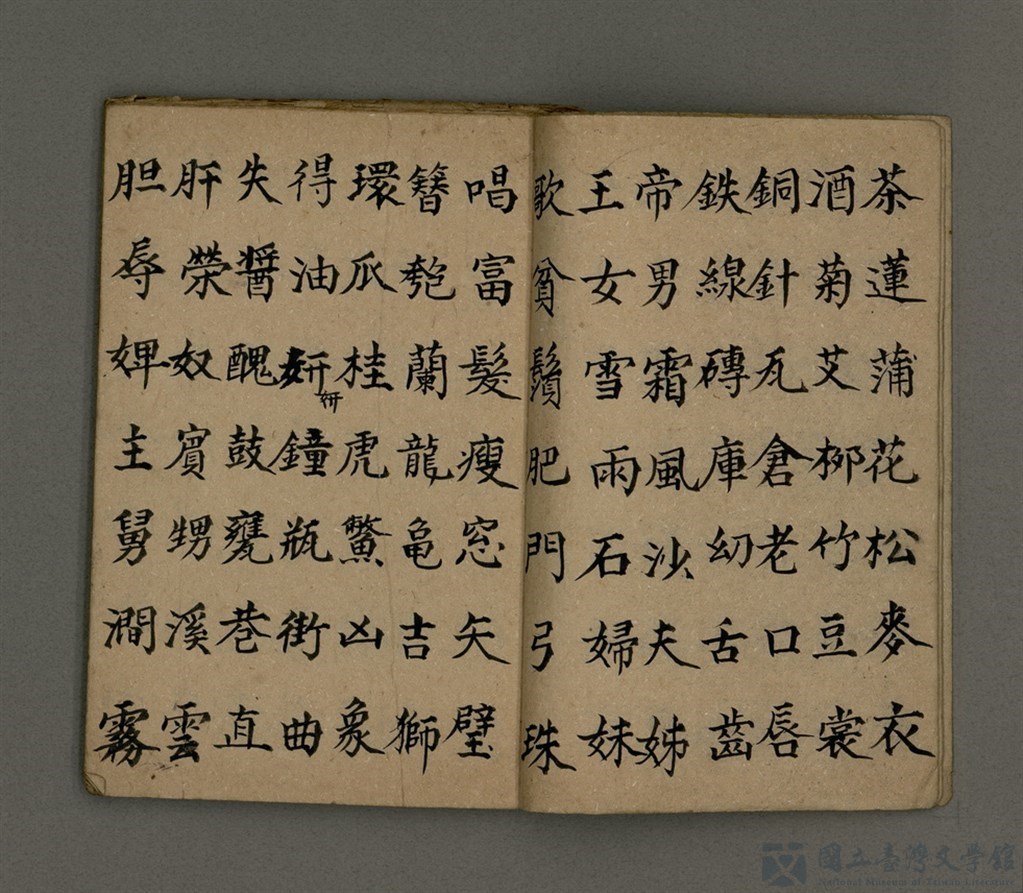 茶蓮蒲花松麥衣
酒菊艾柳竹豆裳
銅針瓦倉老口唇
鉄線磚庫幼舌齒
帝男霜風沙夫姊
王女雪雨石婦妹
歌貧鬚肥門弓珠
唱富髮瘦窓矢璧
簪匏蘭龍亀吉獅
環瓜桂虎鱉凶象
得油妍妍鐘瓶街曲
失醬醜鼓甕巷直
肝榮奴賓甥溪雲
胆辱婢主舅澗霧
國立臺灣文学館
National Museum of Taiwan Literature